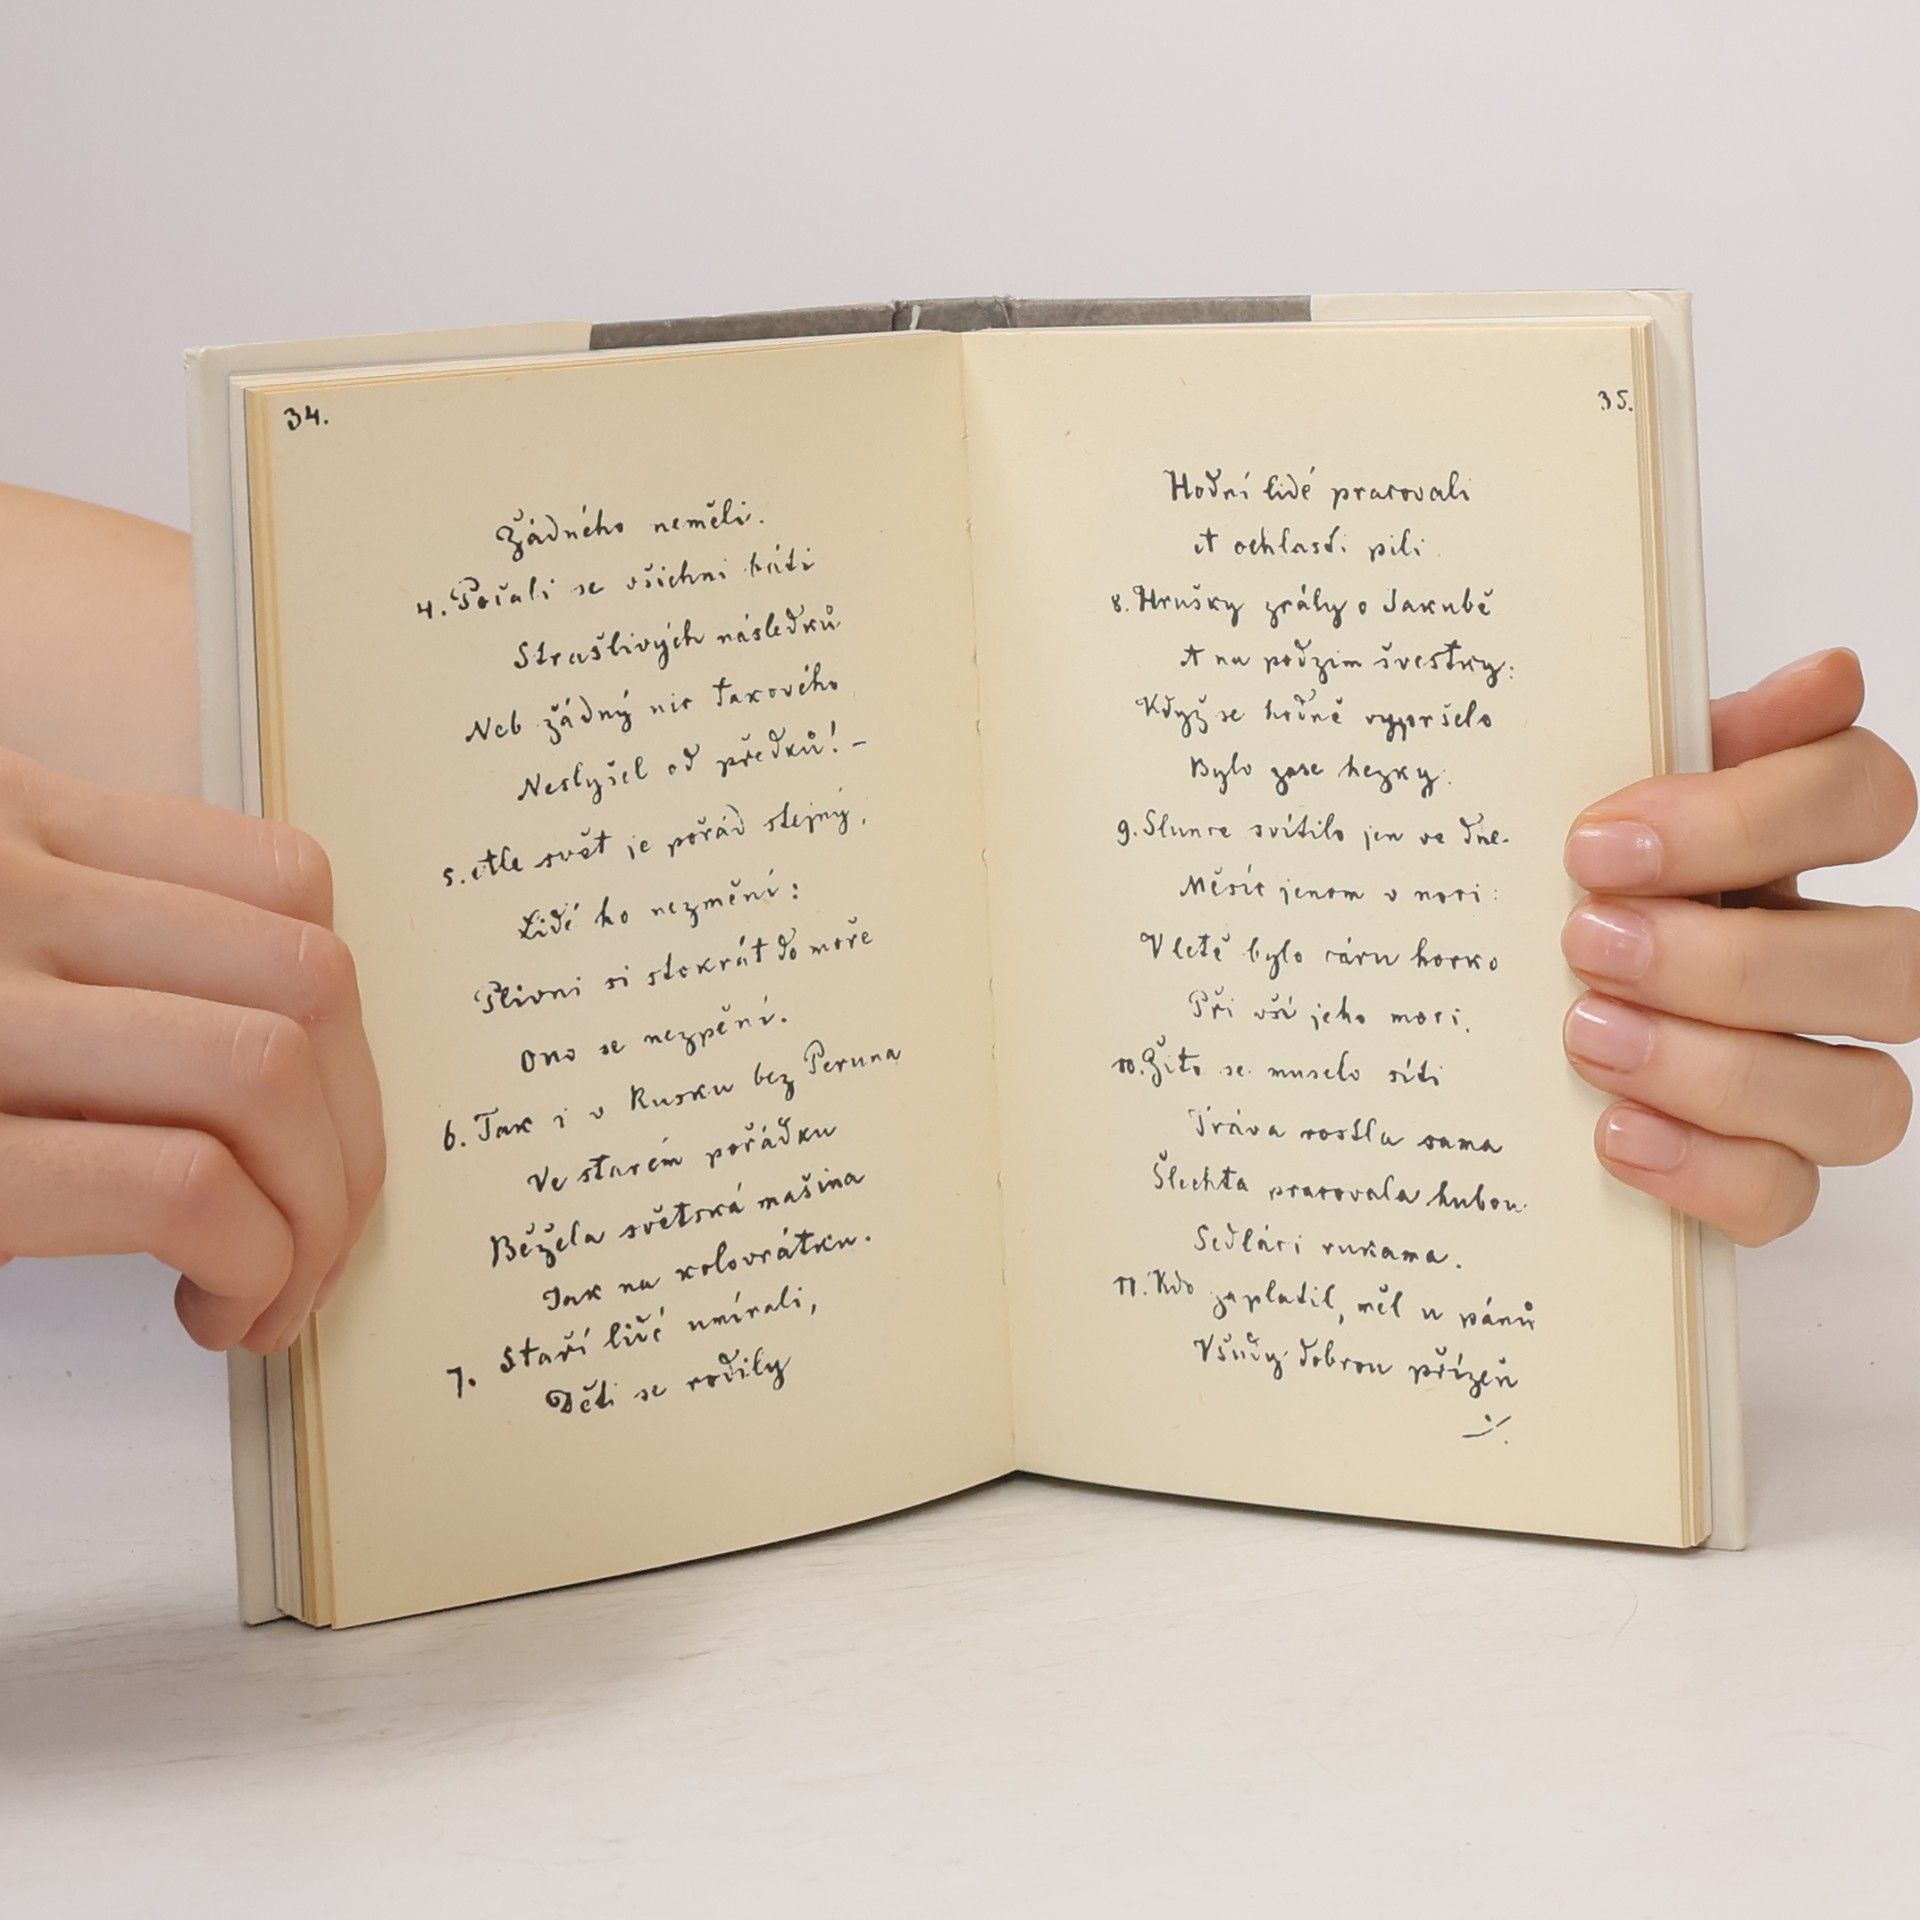 34.
Žádného neměli.
4. Počali se všichni báti
Strašlivých následků
Neb žádný nic takového
Neslyšel od předků! –
5. Ale svět je pořád stejný,
Lidé ho nezmění:
Plivni si stokrát do moře
Ono se nezpění.
6. Tak i v Rusku bez Peruna
Ve starém pořádku
Běžela světská mašina
Jak na kolovrátku.
7. Staří lidé umírali,
Děti se rodily
35.
Hodní lidé pracovali
A ochlasti pili.
8. Hrušky zrály o Jakubě
A na podzim švestky:
Když se hodně vypršelo
Bylo zase hezky.
9. Slunce svítilo jen ve dne-
Měsíc jenom v noci:
V letě bylo čáru horko
Při vší jeho moci.
10. Žito se muselo síti
Tráva rostla sama
Šlechta pracovala hubou
Sedláci rukama.
11. Kdo zaplatil, měl u pánů
Všudy dobrou přízeň